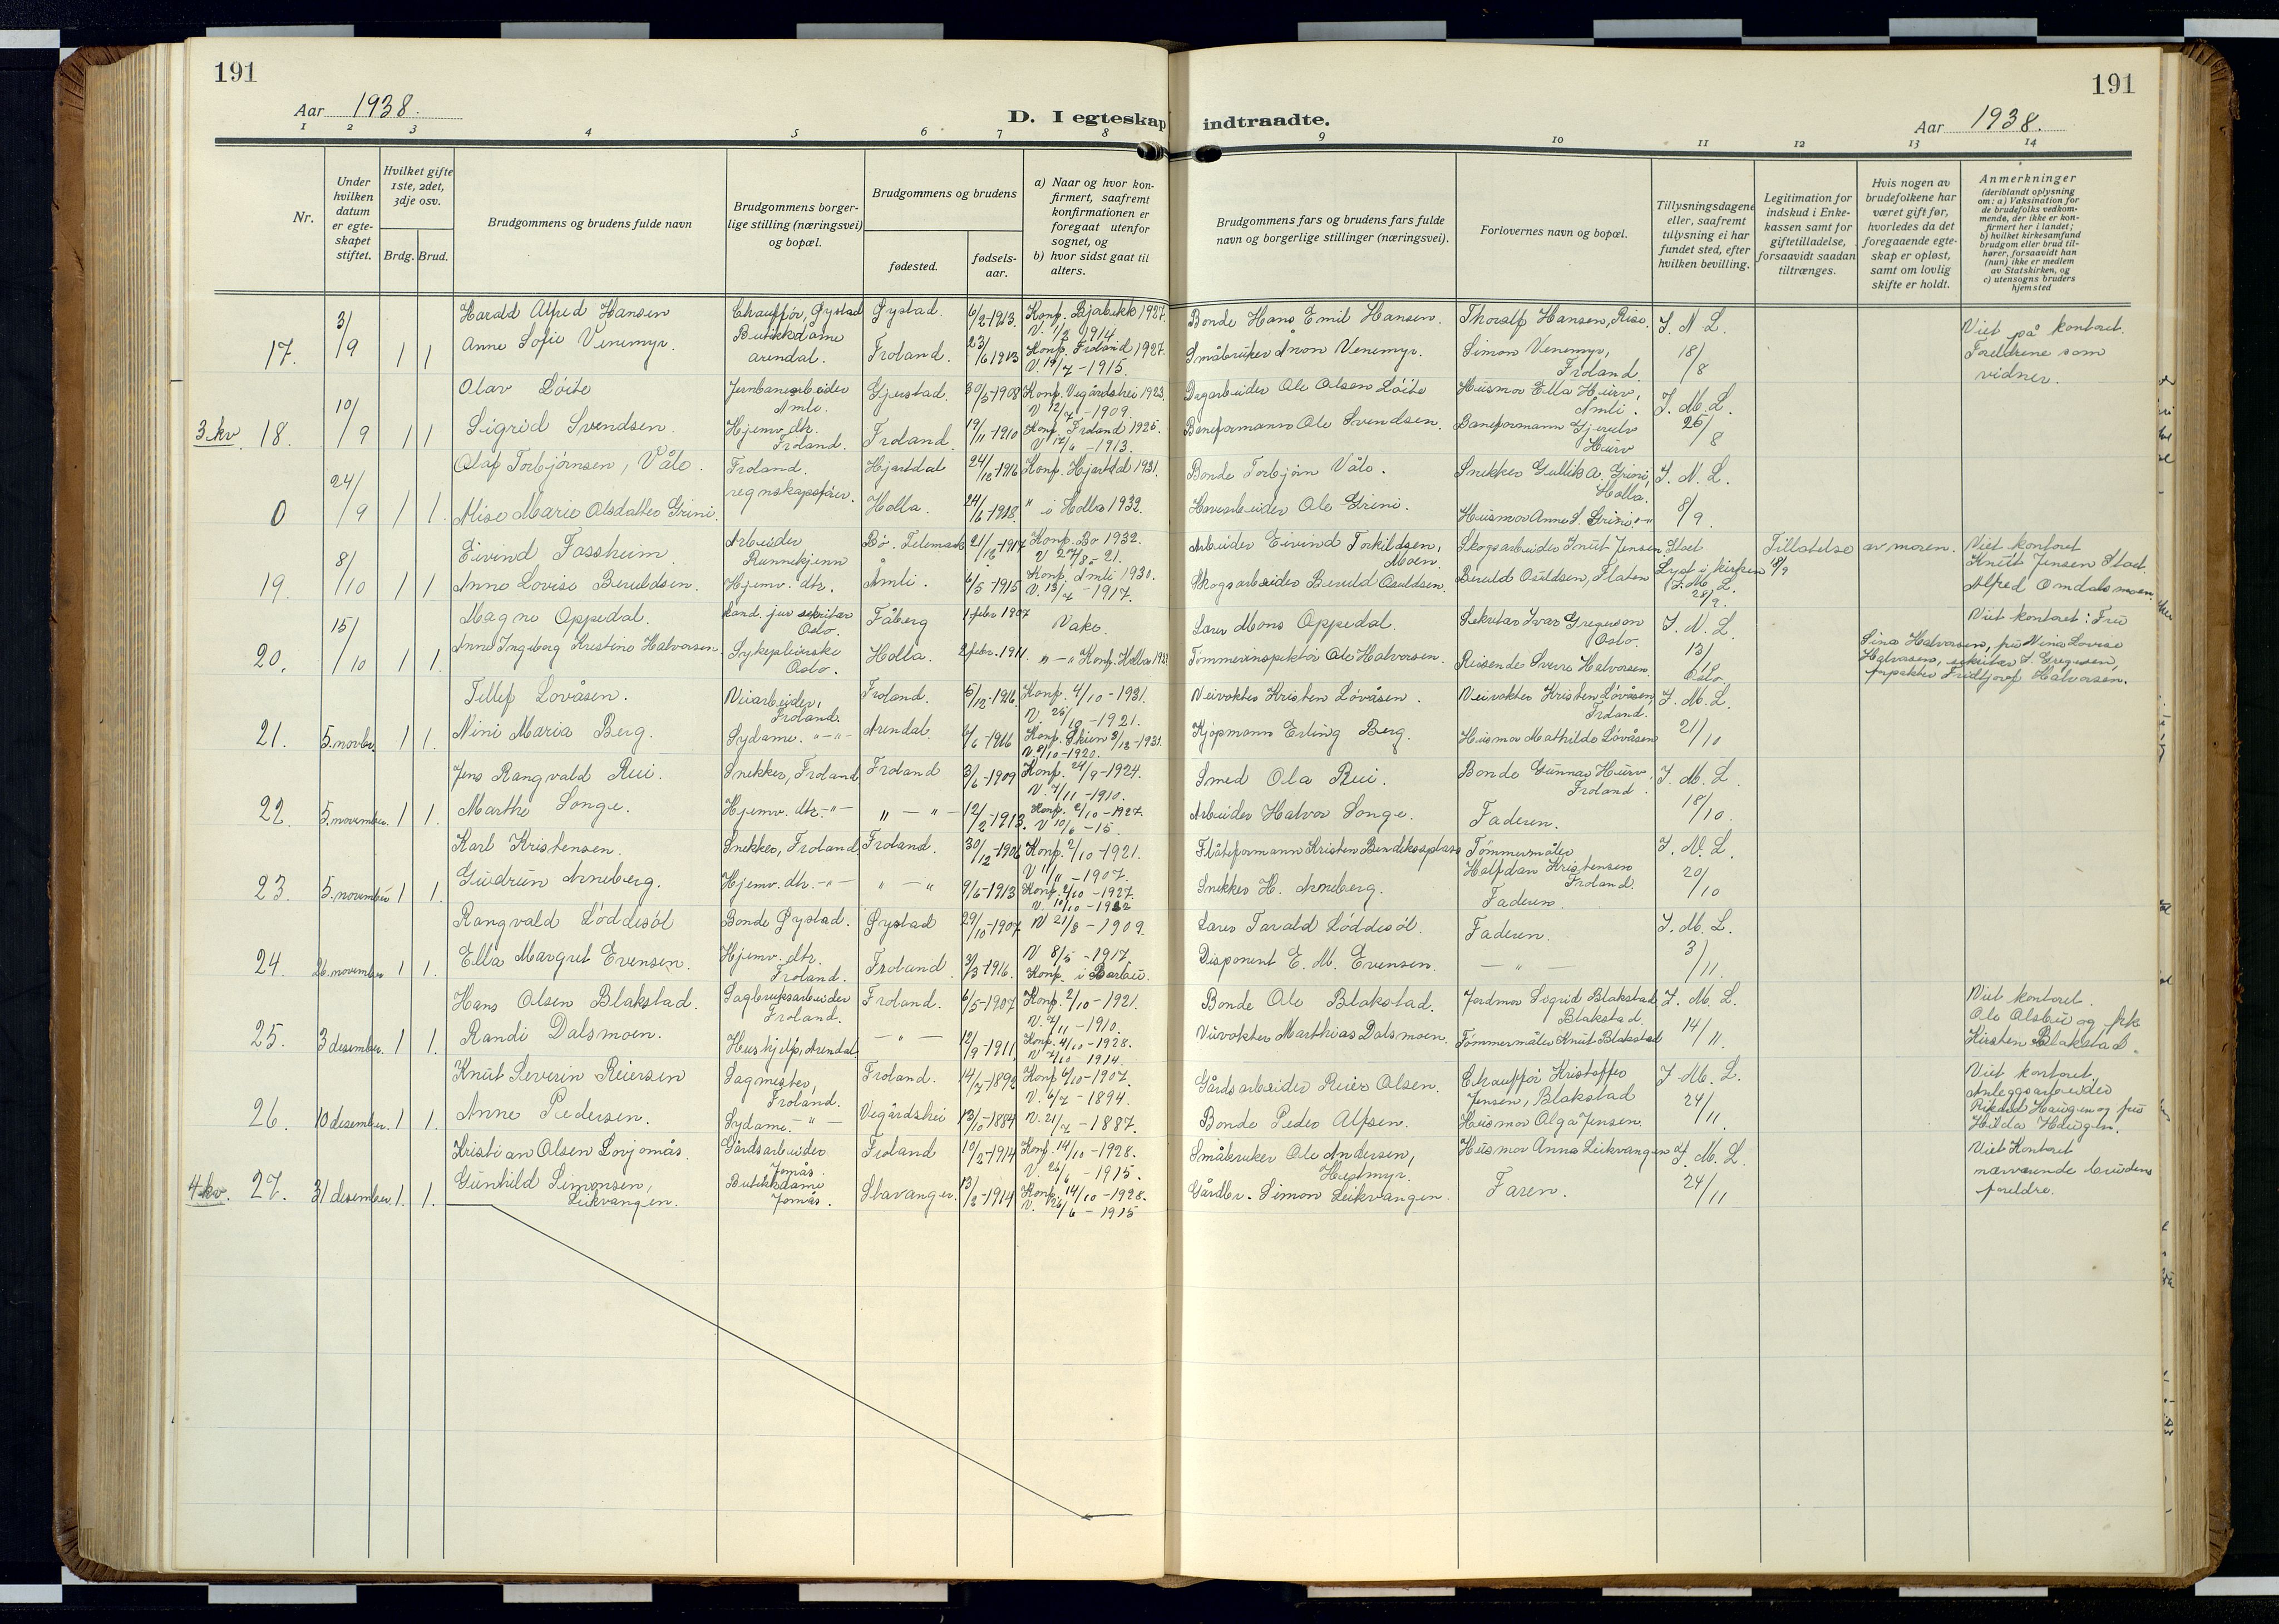 191
191
Aar 1938.
D. I egteskap indtraadte.
Aar 1938.
1 2 3 4 5 6 7 8 9 10 11 12 13 14
Nr.
Under hvilken datum er egteskapet stiftet.
Hvilket gifte 1ste, 2det, 3dje osv.
Brdg. Brud.
Brudgommens og brudens fulde navn
Brudgommens borgerlige stilling (næringsvei) og bopæl.
Brudgommens og brudens
fødested.
fødselsaar.
a) Naar og hvor konfirmert, saafremt konfirmationen er foregaat utenfor sognet, og
b) hvor sidst gaat til alters.
Brudgommens fars og brudens fars fulde navn og borgerlige stillinger (næringsvei).
Forlovernes navn og bopæl.
Tillysningsdagene eller, saafremt tillysning ei har fundet sted, efter hvilken bevilling.
Legitimation for indskud i Enkekassen samt for giftetilladelse, forsaavidt saadan tiltrænges.
Hvis nogen av brudefolkene har været gift før, hvorledes da det foregaaende egteskap er opløst, samt om lovlig skifte er holdt.
Anmerkninger
(deriblandt oplysning om: a) Vaksination for de brudefolks vedkommende, der ikke er konfirmert her i landet;
b) hvilket kirkesamfund brudgom eller brud tilhører, forsaavidt han (hun) ikke er medlem av Statskirken, og
c) utensogns bruders hjemsted
17. 3/9 1 1 Harald Alfred Hansen Chauffør, Øystad Øystad. 6/2-1913. Konf. Bjorbekk 1927. V. 1914. Bonde Hans Emil Hansen. Thoralf Hansen, Rise. I. N. L. Viet på kontoret.
Anne Sofie Venemyr. Butikkdame Arendal. Froland. 23/6 1913 Konf. Froland 1927. V. 19/7-1915. Småbruker Aron Venemyr. Simon Venemyr, Froland. 18/8 Foreldrene som vidner.
3.kv 18. 10/9 1 1 Olav Løite Jernbanearbeider Åmli. Gjerstad. 30/5-1908 Konf. Vegårdshei 1923. V 12/7-1909. Dagarbeider Ole Olsen Løite Husmor Ella Hurv, Åmli. I. M. L.
Sigrid Svendsen. Hjemv. dtr. Froland. Froland. 19/11-1910 Konf. Froland 1925. V 12/6-1913. Baneformann Ole Svendsen. Baneformann Gjerulv Hurv 25/8
0 24/9 1 1. Olaf Torbjørnsen, Våle. Froland. Hjartdal 24/12-1916 Konf. Hjartdal 1931. Bonde Torbjørn Våle. Snekker Gullik A. Grini, Holla. I. N. L.
Alise Marie Olsdatter Grini. regnskapsfører. Holla. 24/6-1918. " i Holla 1932. Havearbeider Ole Grini. Husmor Anna S. Grini -"- 8/9.
19. 8/10 1 1 Eivind Fossheim Arbeider Rannekjenn Bø. Telemark 21/12-1917 Konf. Bø 1932. V 27/8-21. Arbeider Eivind Torkildsen, Moen. Skogsarbeider Knut Jensen Stoet Lyst i kirken 18/9 Tillatelse av moren. Viet kontoret Knut Jensen Stoet.
Anne Lovise Beruldsen. Hjemv. dtr. Åmli. 6/5-1915 Konf. Åmli 1930. V. 13/7-1917. Skogsarbeider Beruld Osuldsen. Beruld Osuldsen, Flaten I. M. L. 28/9. Alfred Omdalsmoen.
20. 15/10 1 1. Magne Oppedal. kand. jur sekretær Oslo. Fåberg 1 febr 1907 Vake. Lærer Mons Oppedal. Sekretær Ivar Gregersen Oslo. I. N. L. Viet kontoret: Fru
Anne Ingeborg Kristine Halvorsen Sykepleierske Oslo. Holla. 2 febr. 1911. " - " Konf. Holla Tømmerinspektør Ole Halvorsen. Reisende Sverre Halvorsen. Oslo. 13/10 Sina Halvorsen, fru Nina Lovise Halvorsen, sekretær I. Gregersen, inspektør Fridtjof Halvorsen.
21. 5. novbr 1 1. Tellef Lovåsen. Veiarbeider, Froland. Froland. 5/12-1916. Konf. 4/10-1931. V. 25/10-1921. Veivokter Kristen Lovåsen. Veivokter Kristen Lovåsen, Froland. I. M. L.
Nini Maria Berg. Sydame. -"- Arendal. 4/6-1916 Konf. Skien 3/12-1931. V. 9/10-1920. Kjøpmann Erling Berg. Husmor Mathilde Lovåsen 21/10
22. 5. november. 1 1. Jens Rangvald Rui. Snekker, Froland Froland 3/6-1909 Konf. 24/9-1924. V. 7/11-1910. Smed Ola Rui. Bonde Gunnar Hurv, Froland. I. M. L.
Marthe Songe. Hjemv. dtr. -"- " - " - 12/2-1913. Konf. 2/10-1927. V 10/6-15. Arbeider Halvor Songe. Faderen. 18/10.
23. 5. november 1 1. Karl Kristensen. Snekker, Froland, Froland. 30/12-1906 Konf. 2/10-1921. V 11/11-1907. Flåteformann Kristen Bendiksplass Tømmermåler Halfdan Kristensen Froland. I. N. L.
Gudrun Arneberg. Hjemv. dtr. -"- " - " 9/6-1913 Konf. 2/10-1927. V. 10/10-1922 Snekker H. Arneberg. Faderen. 20/10
24. 26. november 1 1. Rangvald Løddesøl Bonde Øystad. Øystad 29/10-1907 V 21/8-1909. Lærer Tarald Løddesøl. Faderen. I. M. L.
Ella Margret Evensen. Hjemv. dtr. Froland. Froland 3/3-1916. V 8/5-1917. Konf. i Barbu. Disponent E. M. Evensen. — " — 3/11.
25. 3 desember. 1 1. Hans Olsen Blakstad. Sagbruksarbeider Froland. Froland. 6/5-1907 Konf. 2/10-1921. V. 7/11-1910. Bonde Ole Blakstad. Jordmor Sigrid Blakstad Blakstad. I. M. L. Viet kontoret.
Randi Dalsmoen. Hushjelp, Arendal — " — 12/9-1911 Konf. 4/10-1928. V 7/10-1914. Veivokter Marthias Dalsmoen. Tømmermåler Knut Blakstad 14/11. Ole Olsbu og frk Kirsten Blakstad.
26. 10 desember. 1 1. Knut Severin Reiersen Sagmester, Froland. Froland. 14/2-1892 Konf 6/10-1907. V. 6/7-1894. Gårdsarbeider Reier Olsen. Chauffør Kristoffer Jensen, Blakstad I. M. L. Viet kontoret,
Anne Pedersen. Sydame. -"- Vegårdshei 13/10-1884 V. 21/7-1887. Bonde Peder Alfsen. Husmor Olga Jensen. 24/11. Anleggsarbeider Rikard Haugen og fru Hilda Haugen.
4.kv. 27. 31 desember. 1. 1. Kristian Olsen Lorjomås. Gårdsarbeider Jomås. Froland 10/2-1914 Konf. 14/10-1928. V. 26/6-1915. Småbruker Ole Andersen, Hestmyr. Husmor Anna Leikvangen I. M. L. Viet Kontoret
Gunhild Simonsen, Leikvangen. Butikkdame Jomås. Stavanger. 13/2-1914 Konf. 14/10-1928. V. 26/6-1915 Gårdbr. Simon Leikvangen. Faren. 24/11 nærværende brudens foreldre.